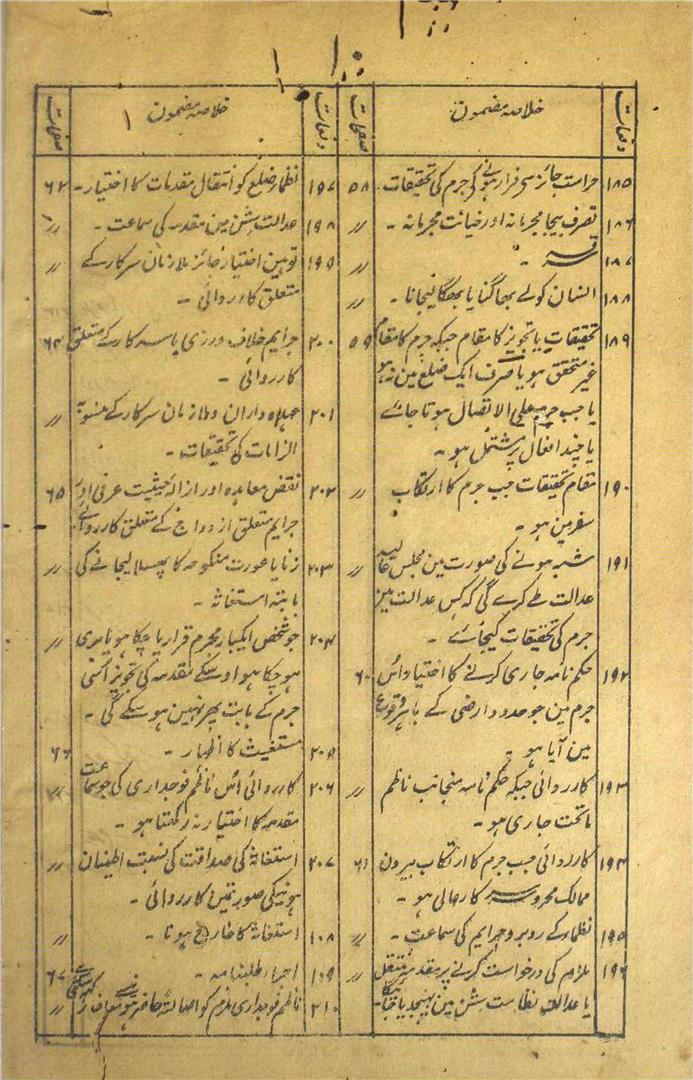 ۱۰
دفعات خلاصہ مضمون صفحات
۱۸۵ حراست جائز سے فرار ہونے کی جرم کی تحقیقات ۵۸
۱۸۶ تصرف بیجا مجرمانہ اور خیانت مجرمانہ ۔ 〃
۱۸۷ سرقہ ۔ 〃
۱۸۸ انسان کو لے بھاگنا یا بھگا لیجانا ۔ 〃
۱۸۹ تحقیقات یا تجویز کا مقام جبکہ جرم کا مقام ۵۹
غیر متحقق ہو یا صرف ایک ضلع مین نہ ہو
یا جب جرم علی الاتصال ہوتا جاے
یا چند افعال پر مشتمل ہو ۔
۱۹۰ مقام تحقیقات جب جرم کا ارتکاب 〃
سفر مین ہو ۔
۱۹۱ شبہ ہونے کی صورت مین مجلس عالیہ 〃
عدالت طے کرے گی کہ کس عدالت مین
جرم کی تحقیقات کیجاے ۔
۱۹۲ حکم نامہ جاری کرنے کا اختیار اوس ۶۰
جرم مین جو حدود ارضی کے باہر وقوع
مین آیا ہو ۔
۱۹۳ کارروائی جبکہ حکم نامہ منجانب ناظم 〃
ماتحت جاری ہو ۔
۱۹۴ کارروائی جب جرم کا ارتکاب بیرون ۶۱
ممالک محروسہ سرکار عالی ہو ۔
۱۹۵ نظماء کے روبرو جرایم کی سماعت ۔ 〃
۱۹۶ ملزم کی درخواست کرنے پر مقدمہ منتقل 〃
یا عدالت نظامت سشن مین بھیجدیا جائیگا
دفعات خلاصہ مضمون صفحات
۱۹۷ نظماء ضلع کو انتقال مقدمات کا اختیار ۔ ۶۲
۱۹۸ عدالت سشن مین مقدمہ کی سماعت ۔ 〃
۱۹۹ توہین اختیار جائز ملازمان سرکار کے 〃
متعلق کارروائی ۔
۲۰۰ جرایم خلاف ورزی با سرکار کے متعلق ۶۴
کارروائی ۔
۲۰۱ عہدہ داران و ملازمان سرکار کے منسوبہ 〃
الزامات کی تحقیقات ۔
۲۰۲ نقض معاہدہ اور ازالہ حیثیت عرفی اور ۶۵
جرایم متعلق ازدواج کے متعلق کارروائی
۲۰۳ زنا یا عورت منکوحہ کا پھسلا لیجانے کی 〃
بابتہ استغاثہ ۔
۲۰۴ جو شخص ایکبار مجرم قرار پا چکا ہو یا بری 〃
ہو چکا ہو اوسکے مقدمہ کی تجویز اوسی
جرم کے بابت پھر نہین ہو سکے گی ۔
۲۰۵ مستغیث کا اظہار ۔ ۶۶
۲۰۶ کارروائی اوس ناظم فوجداری کی جو سماعت 〃
مقدمہ کا اختیار نہ رکھتا ہو ۔
۲۰۷ استغاثہ کی صداقت کی نسبت اطمینان 〃
ہونیکی صورتمین کارروائی ۔
۱۰۸ استغاثہ کا خارج ہونا ۔ 〃
۱۰۹ اجراء طلبنامہ ۔ ۶۷
۲۱۰ ناظم فوجداری ملزم کو اصالۃً حاضر ہونے سے معاف 〃